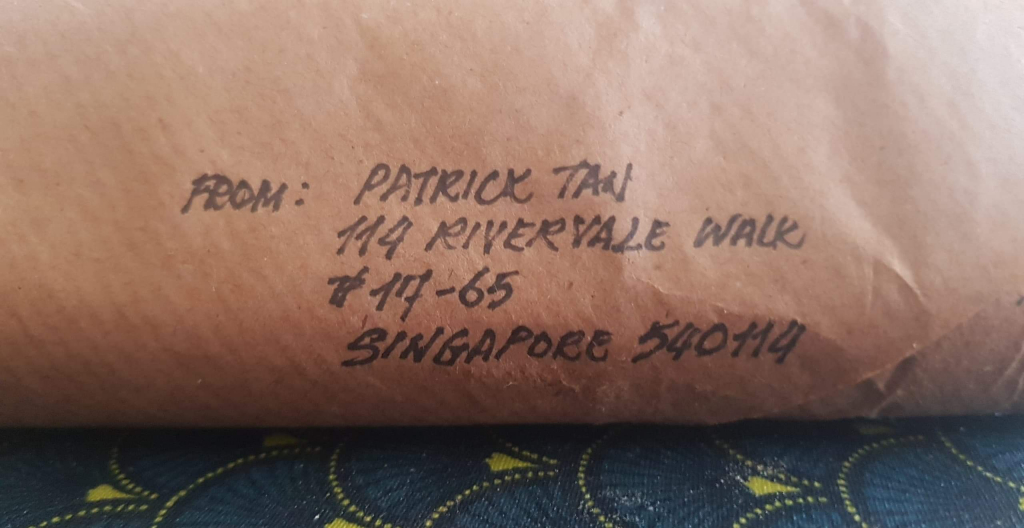 FROM: PATRICK TAN
114 RIVERVALE WALK
#17-65
SINGAPORE 540114